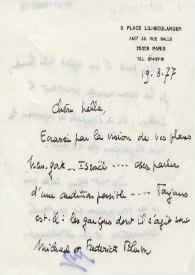 3. PLACE LILI-BOULANGER
ANCt 36. RUE BALLU
75009 PARIS
TEL. 874-57-91
19.8.77
Chère Nella,
Ecrasée par la vision de vos plans
New-York — Israël .... oses parler
d'une audition possible ---- Toujours
est-il: les garçons dont il s'agit sont
Michael et Frederick Blum